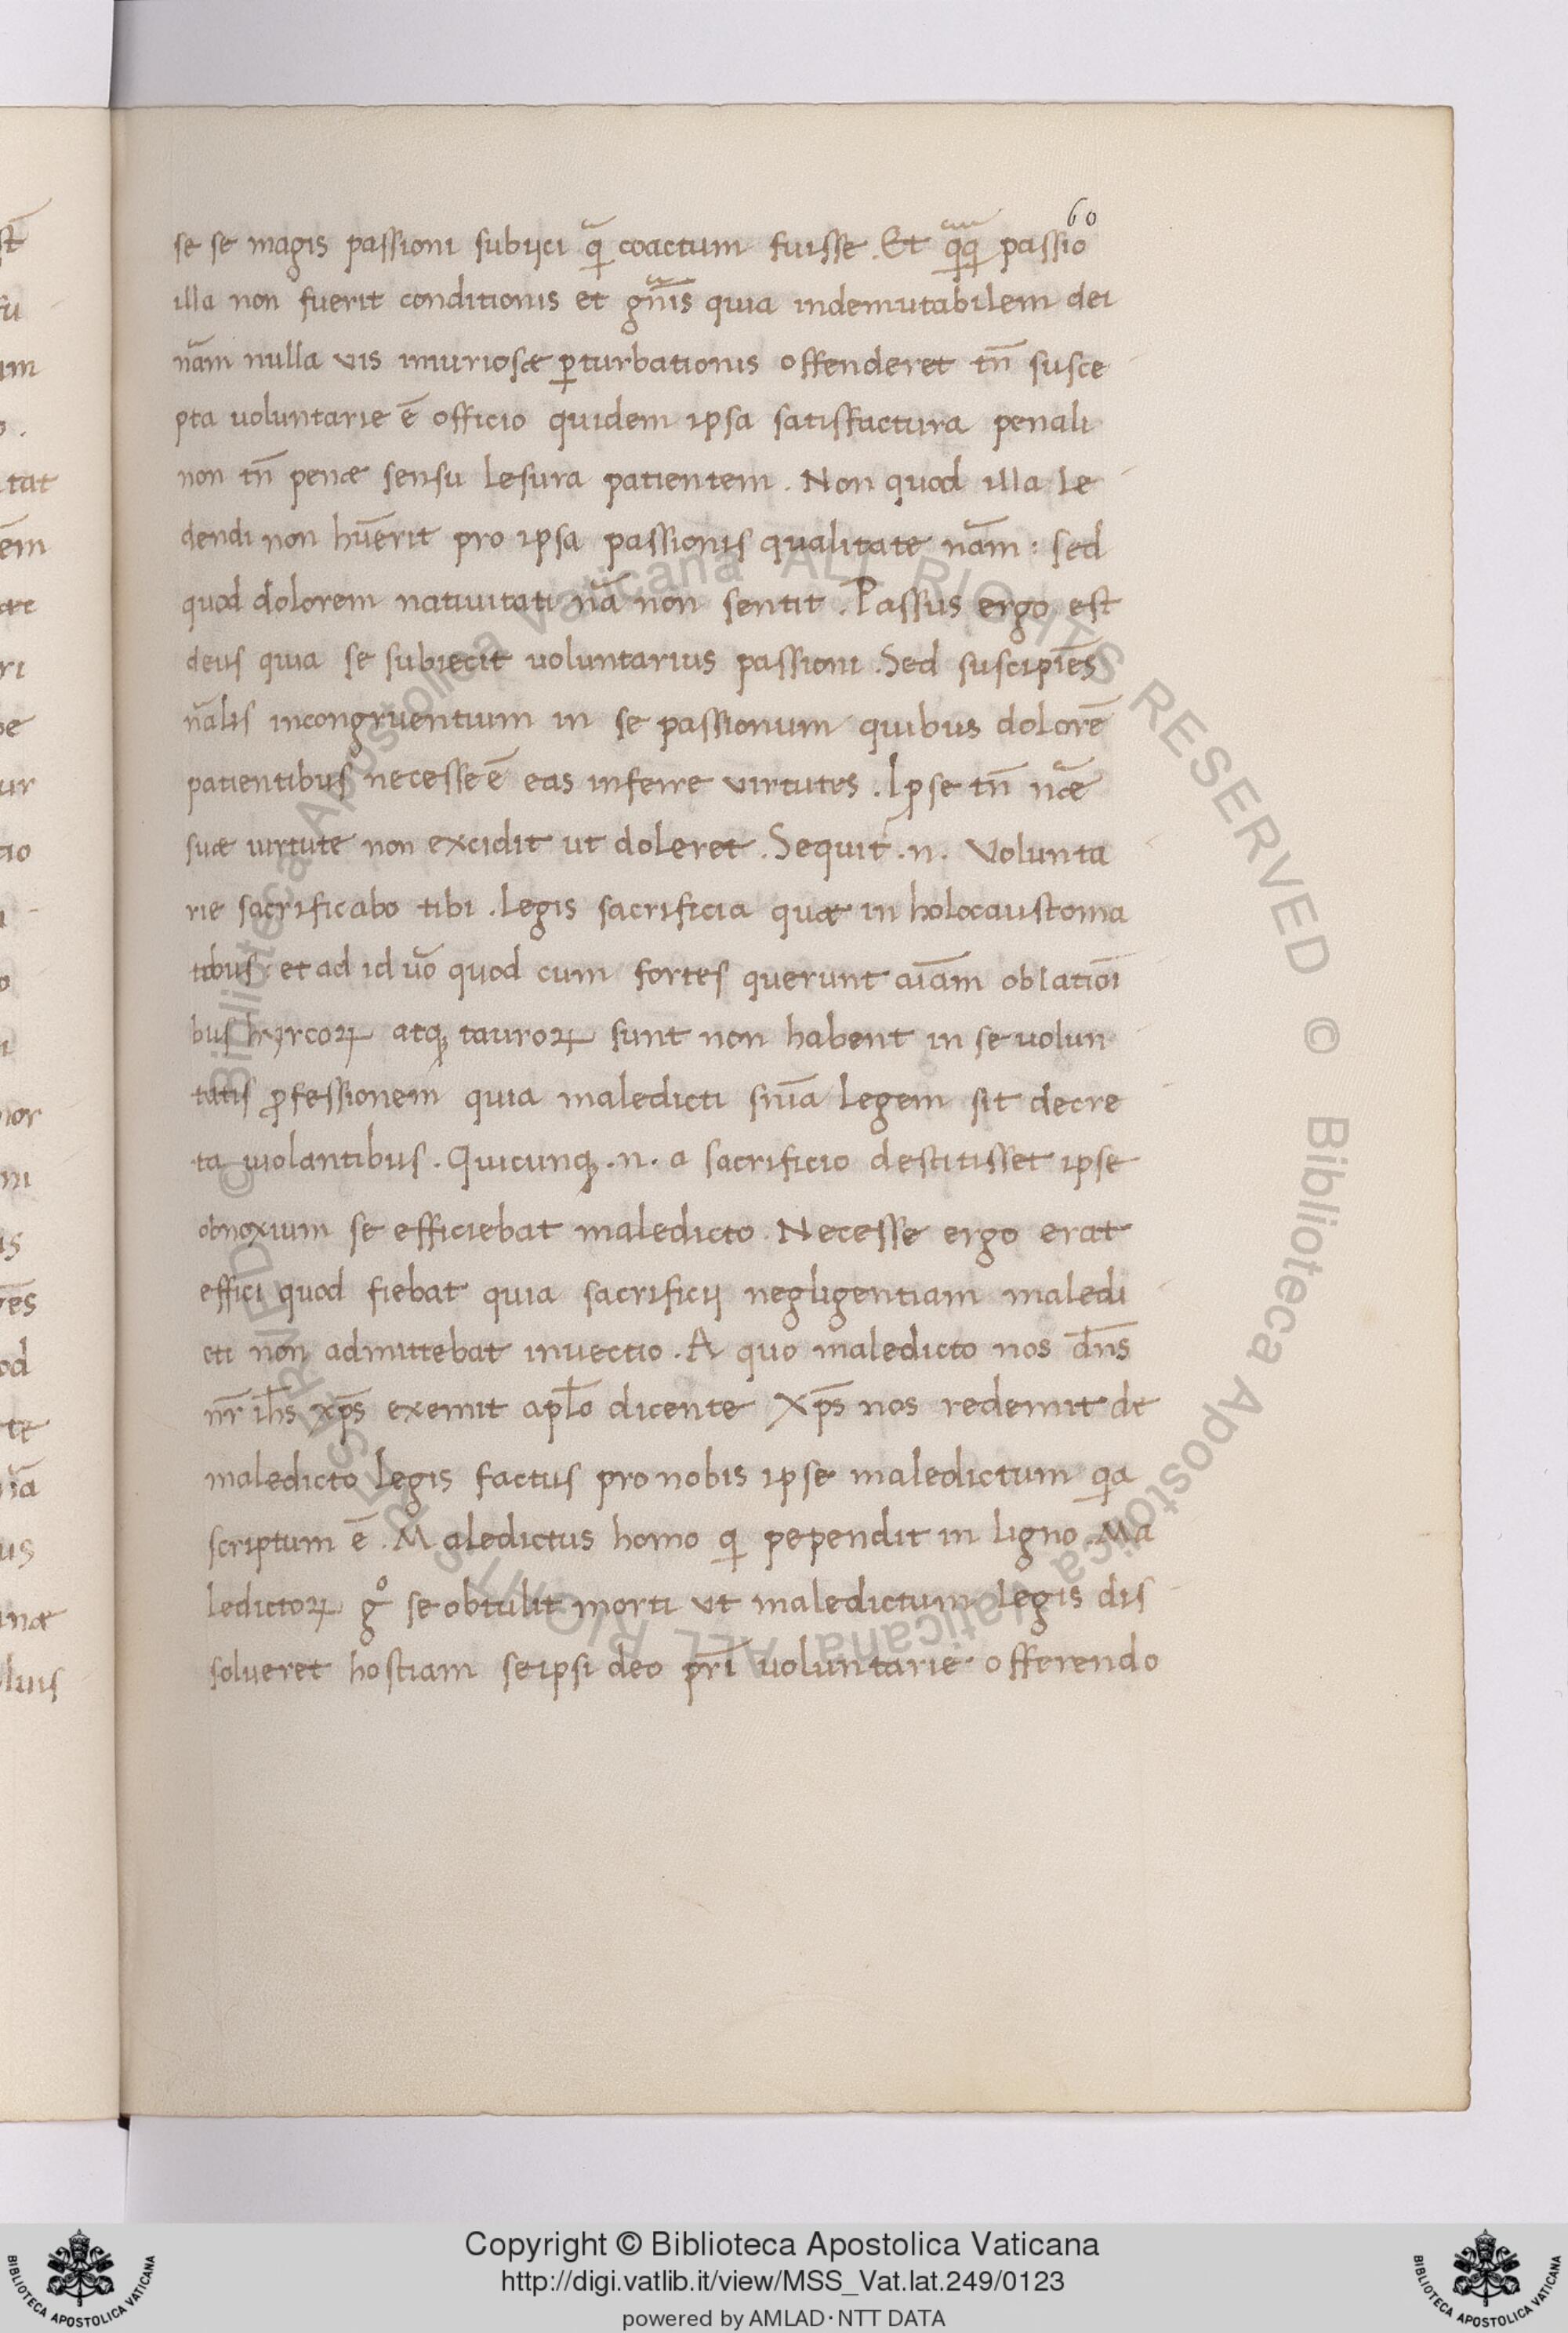 60
se se magis passioni subijci qᷓ coactum fuisse. Et qᷓqᷓ passio
illa non fuerit conditionis et gn̄is quia indemutabilem dei
nām nulla vis iniuriosæ ꝑturbationis offenderet tn̄ susce
pta uoluntarie ē officio quidem ipsa satisfactura penali
non tn̄ penæ sensu lesura patientem. Non quod illa le
dendi non hūerit pro ipsa passionis qualitate nām: sed
quod dolorem natiuitati nā non sentit. Passus ergo est
deus quia se subiecit uoluntarius passioni. Sed suscipiēs
nālis incongruentium in se passionum quibus dolorē
patientibus necesse ē eas inferre virtutes. Ipse tn̄ nāe
suæ uirtute non excidit ut doleret. Sequit᷑ .n. Volunta
rie sacrificabo tibi. Legis sacrificia quæ in holocaustoma
tibus: et ad id uō quod cum fortes querunt aīam oblatiōi
bus hyrcoꝝ atqꝫ tauroꝝ sunt non habent in se uolun
tatis ꝓfessionem quia maledicti sn̄ia legem sit decre
ta uiolantibus. Quicunqꝫ .n. a sacrificio destitisset ipse
obnoxium se efficiebat maledicto. Necesse ergo erat
effici quod fiebat quia sacrificij negligentiam maledi
cti non admittebat inuectio. A quo maledicto nos dn̄s
nr̄ ihs̄ xp̄s exemit apl̄o dicente Xp̄s nos redemit de
maledicto legis factus pro nobis ipse maledictum qa
scriptum ē. Maledictus homo q pependit in ligno. Ma
ledictoꝝ gͦ se obtulit morti ut maledictum legis dis
solueret hostiam se ipsi deo pr̄i uoluntarie offerendo
Copyright © Biblioteca Apostolica Vaticana
http://digi.vatlib.it/view/MSS_Vat.lat.249/0123
powered by AMLAD·NTT DATA